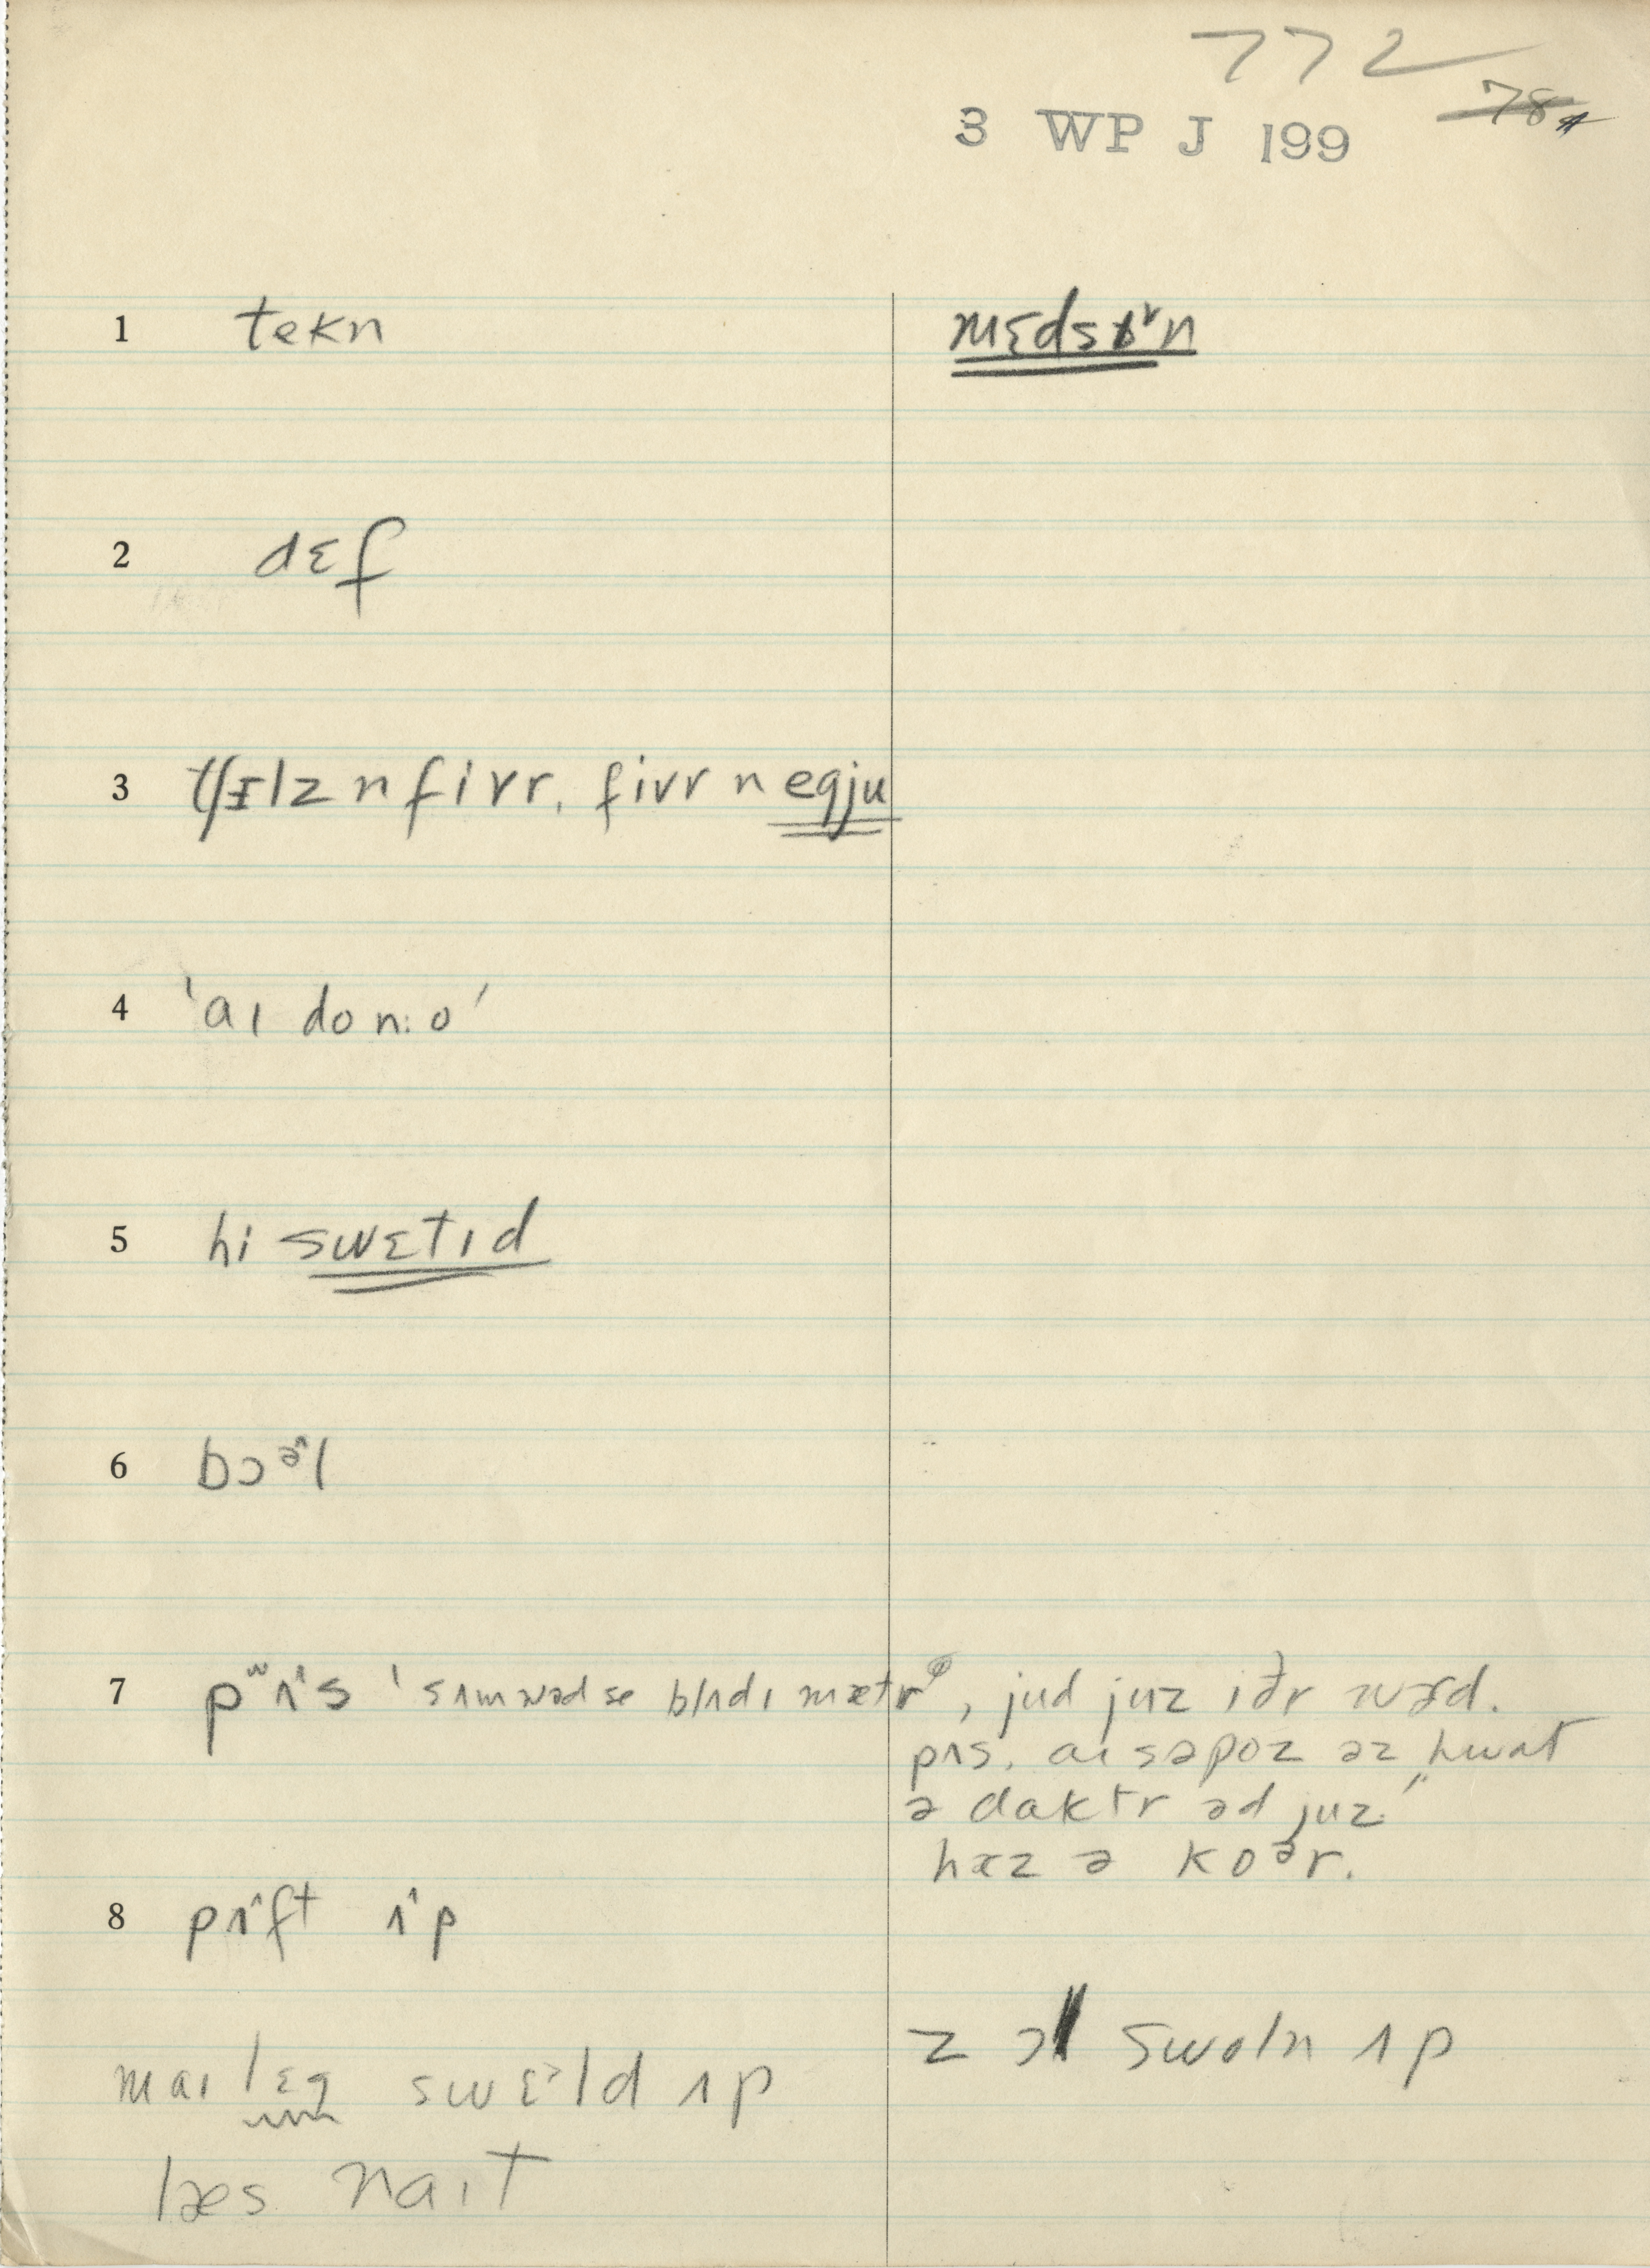 772
78
3 WP J 199
1 tekn
mɛdsn̩
2 dɛf
3 tʃɪlz n fivr, fivr n egju
4 'aɪ do n:o'
5 hi swɛtɪd
6 bɔᵊl
7 pʌs 'sʌm wəd se blʌdɪ mætr, jud juz iðr wɝd.
pʌs. aɪ səpoz əz hwʌt
ə daktr əd juz."
hæz ə koᵊr.
8 pʌft ʌp
z ɔl swoln ʌp
maɪ lɛg swɛᵊld ʌp
læs naɪt